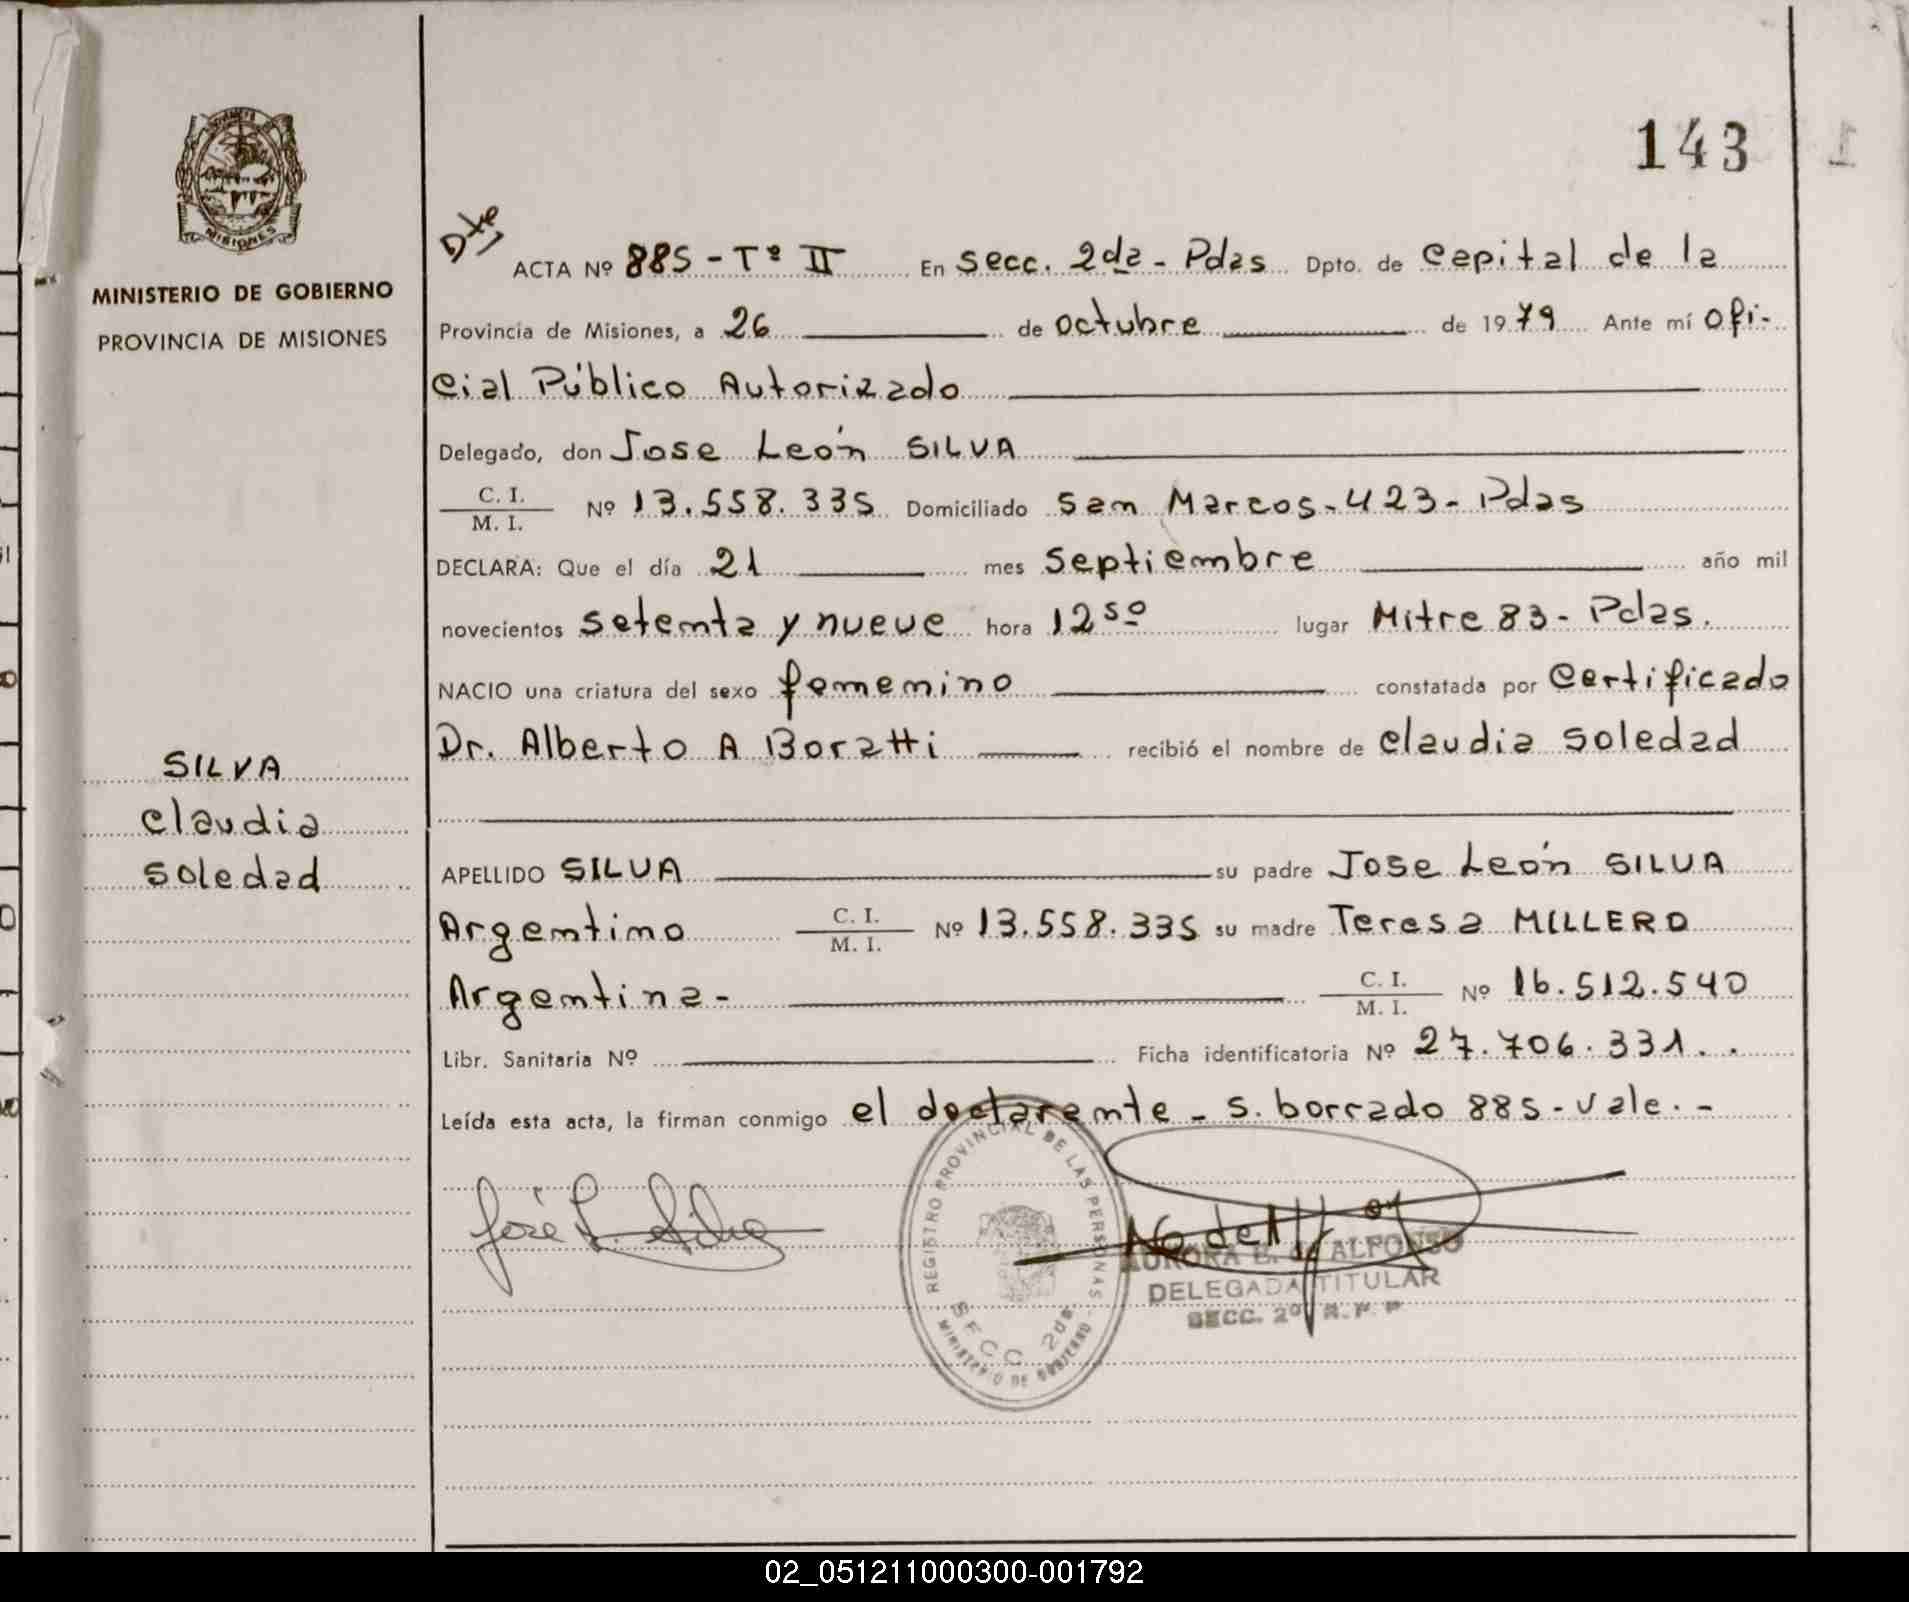 143
MISIONES
MINISTERIO DE GOBIERNO
PROVINCIA DE MISIONES
SILVA
Claudia
Soledad
Dte
ACTA Nº 885 - Tº II En Secc. 2da - Pdas Dpto. de Capital de la
Provincia de Misiones, a 26 de Octubre de 1979 Ante mí Ofi-
cial Público Autorizado
Delegado, don Jose León SILVA
C. I.
M. I. Nº 13.558.335 Domiciliado San Marcos - 423 - Pdas
DECLARA: Que el día 21 mes Septiembre año mil
novecientos setenta y nueve hora 12 50 lugar Mitre 83 - Pdas.
NACIO una criatura del sexo femenino constatada por Certificado
Dr. Alberto A Boratti recibió el nombre de Claudia Soledad
APELLIDO SILVA su padre Jose León SILVA
Argentino C. I.
M. I. Nº 13.558.335 su madre Teresa MILLERO
Argentina - C. I.
M. I. Nº 16.512.540
Libr. Sanitaria Nº Ficha identificatoria Nº 27.706.331..
Leída esta acta, la firman conmigo el declarante - S. borrado 885 - Vale. -
José L. Silva
REGISTRO PROVINCIAL DE LAS PERSONAS
SECC 2da
MINISTERIO DE GOBIERNO
AURORA E. de ALFONSO
DELEGADA TITULAR
SECC. 2º R. P. P
02_051211000300-001792